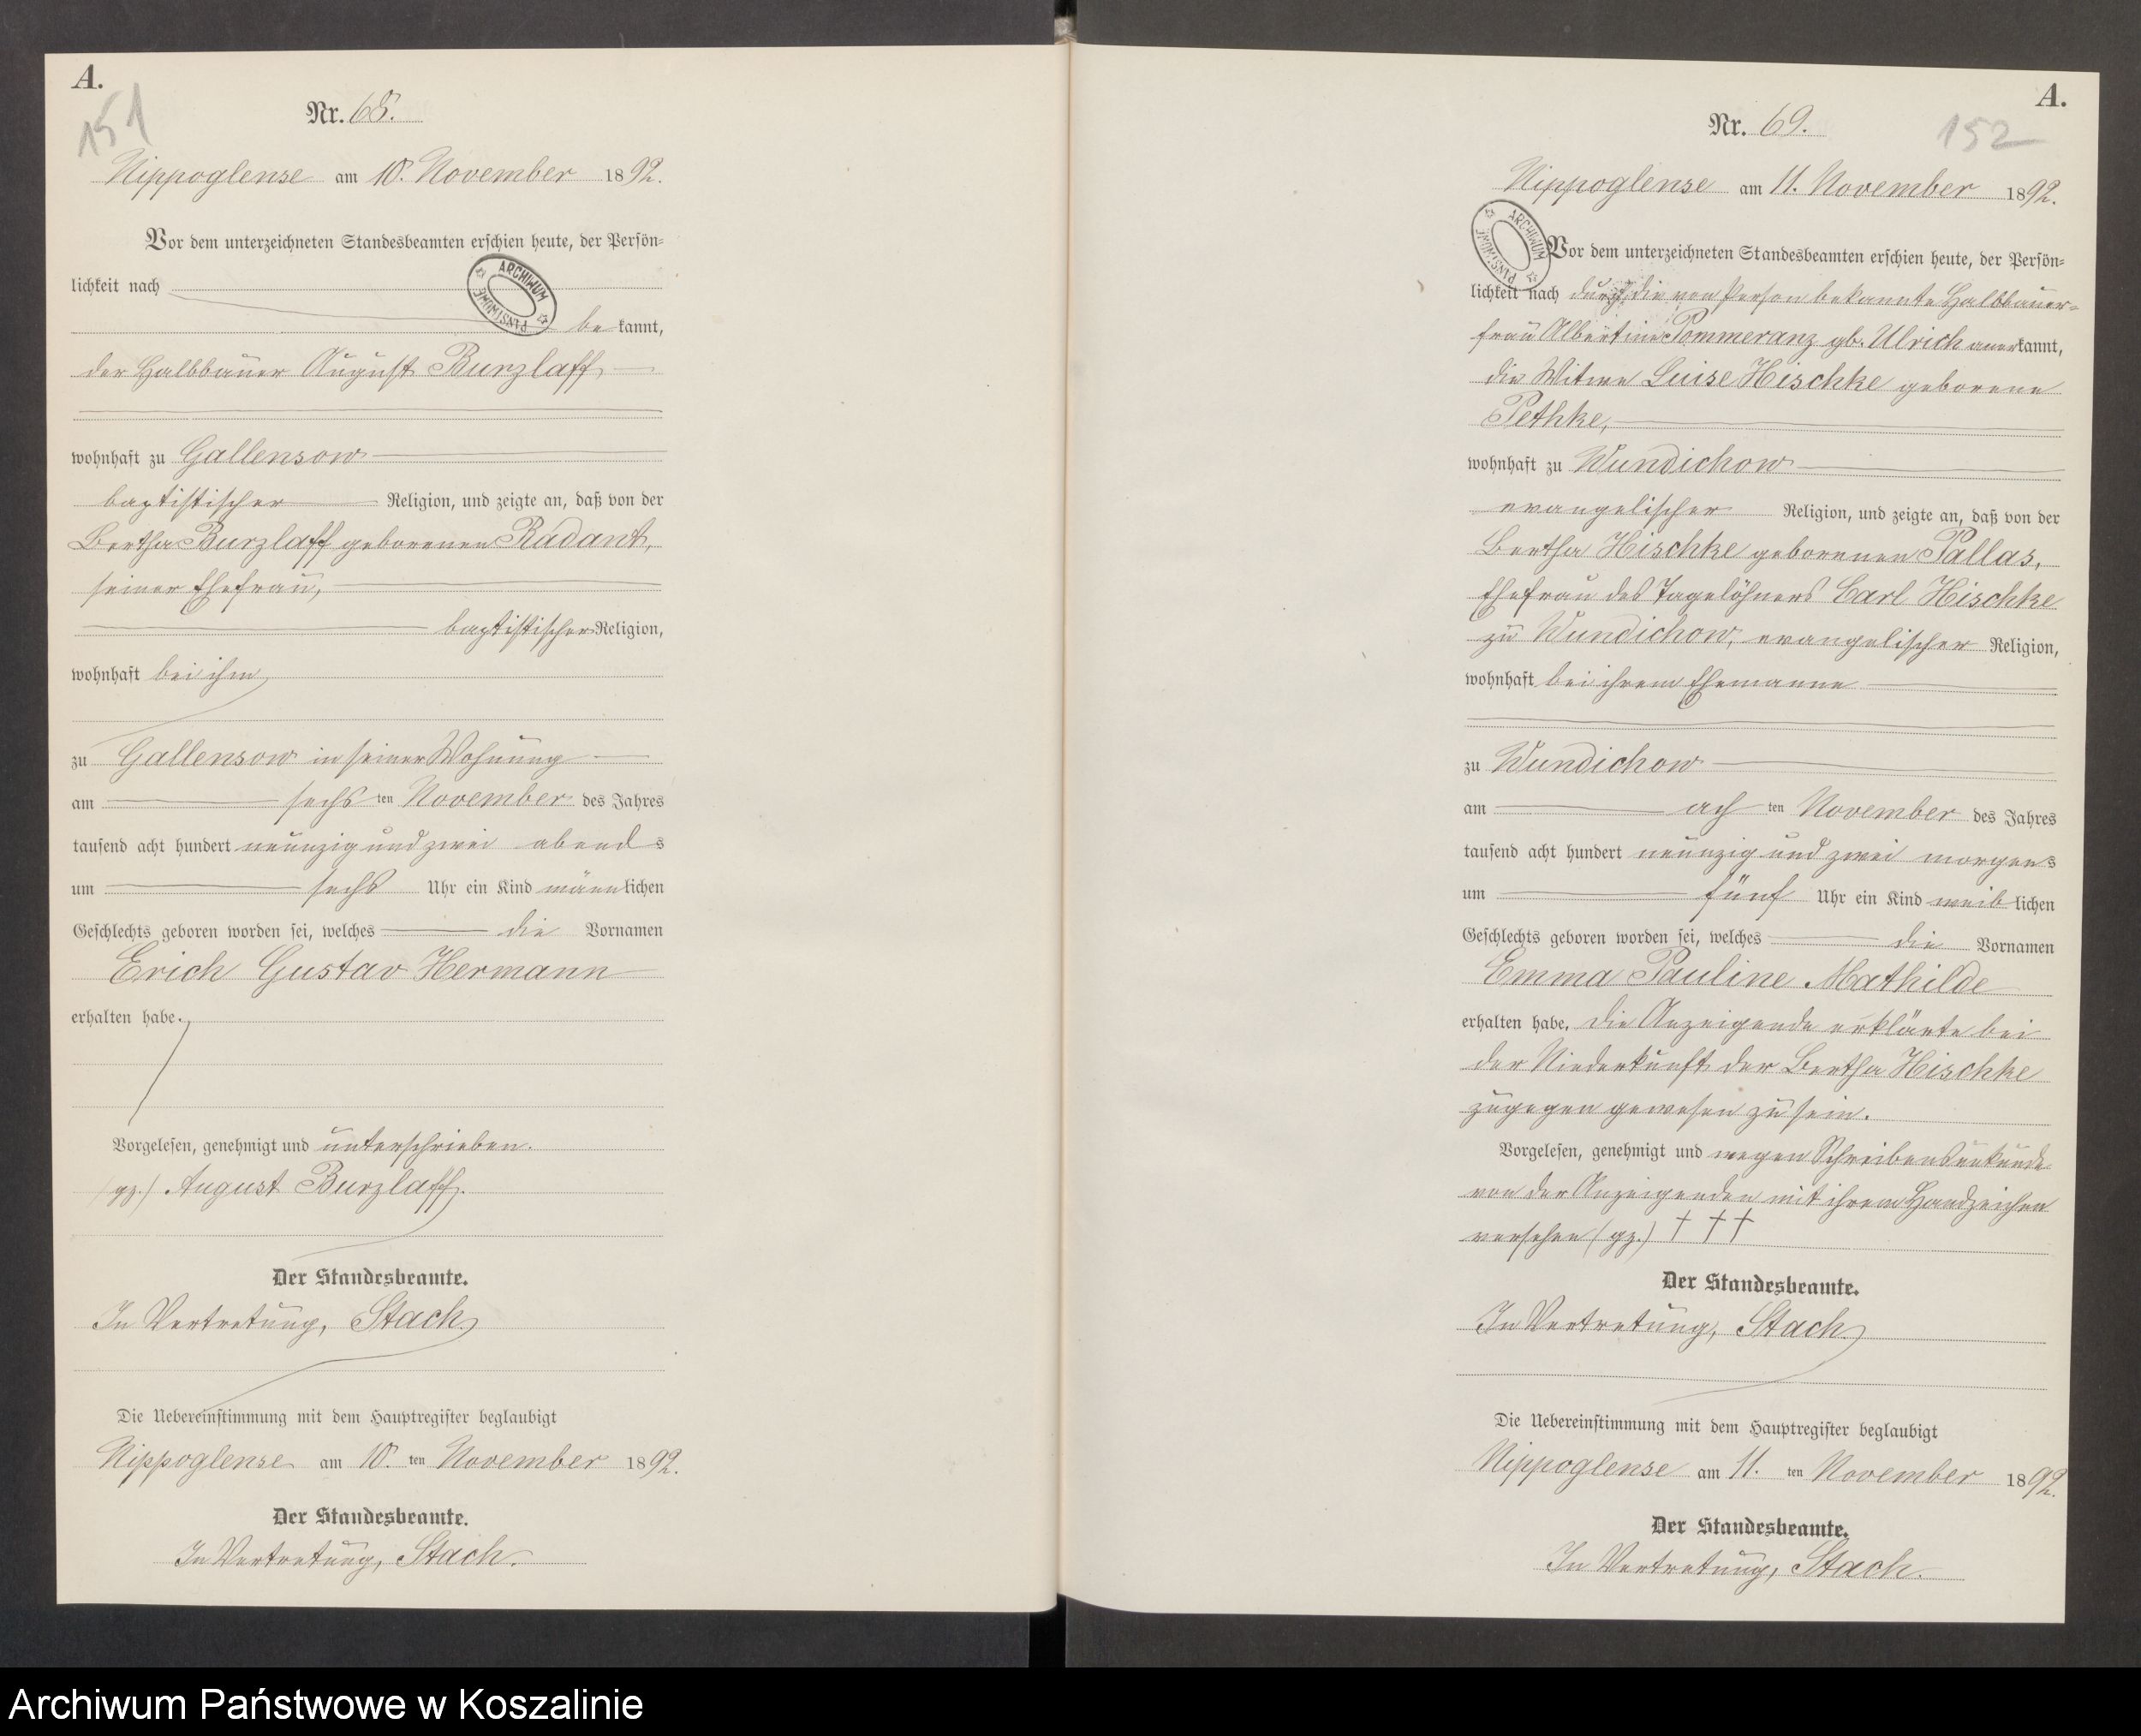 A.
151
Nr. 68.
Nippoglense am 10. November 1892.
Vor dem unterzeichneten Standesbeamten erschien heute, der Persön-
lichkeit nach
ARCHIWUM PAŃSTWOWE
be kannt,
der Halbbauer August Burzlaff,
wohnhaft zu Gallensow
baptistischer Religion, und zeigte an, daß von der
Bertha Burzlaff geborenen Radant,
seiner Ehefrau,
baptistischer Religion,
wohnhaft bei ihm
zu Gallensow in seiner Wohnung
am sechs ten November des Jahres
tausend acht hundert neunzig und zwei abend s
um sechs Uhr ein Kind männlichen
Geschlechts geboren worden sei, welches die Vornamen
Erich Gustav Hermann
erhalten habe.
Vorgelesen, genehmigt und unterschrieben.
(gz.) August Burzlaff.
Der Standesbeamte.
In Vertretung, Stach
Die Uebereinstimmung mit dem Hauptregister beglaubigt
Nippoglense am 10. ten November 1892.
Der Standesbeamte.
In Vertretung, Stach.
A.
152
Nr. 69.
Nippoglense am 11. November 1892.
ARCHIWUM PAŃSTWOWE
Vor dem unterzeichneten Standesbeamten erschien heute, der Persön-
lichkeit nach durch die von Person bekannte Halbbauer-
frau Albertine Pommeranz gb. Ulrich anerkannt,
die Witwe Luise Hischke geborene
Pethke,
wohnhaft zu Wundichow
evangelischer Religion, und zeigte an, daß von der
Bertha Hischke geborenen Pallas,
Ehefrau des Tagelöhners Carl Hischke
zu Wundichow, evangelischer Religion,
wohnhaft bei ihrem Ehemanne
zu Wundichow
am ach ten November des Jahres
tausend acht hundert neunzig und zwei morgens
um fünf Uhr ein Kind weib lichen
Geschlechts geboren worden sei, welches die Vornamen
Emma Pauline Mathilde
erhalten habe. Die Anzeigende erklärte bei
der Niederkunft der Bertha Hischke
zugegen gewesen zu sein.
Vorgelesen, genehmigt und wegen Schreibensunkunde
von der Anzeigenden mit ihrem Handzeichen
versehen (gz.) † † †
Der Standesbeamte.
In Vertretung, Stach
Die Uebereinstimmung mit dem Hauptregister beglaubigt
Nippoglense am 11. ten November 1892.
Der Standesbeamte.
In Vertretung, Stach.
Archiwum Państwowe w Koszalinie